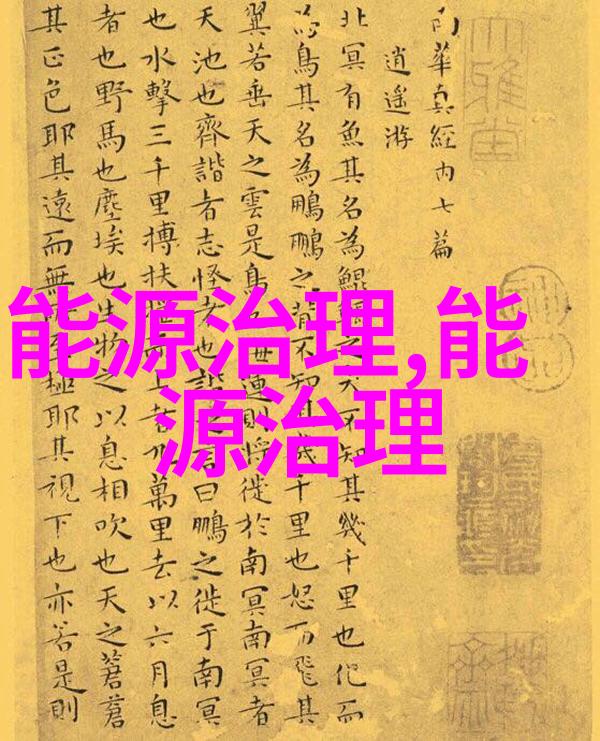 能源治理,能
源治理
南華真經内七篇
逍遥游
北冥有魚其名為鯤鯤之大不知其幾千里也化而
為鳥其名為鵬鵬之背不知其幾千里也怒而飛其
翼若垂天之雲是鳥也海運則將徙於南冥南冥者
天池也齊諧者志怪者也諧之言曰鵬之徙于南冥
也水擊三千里搏扶搖而上者九萬里去以六月息
者也野馬也塵埃也生物之以息相吹也天之蒼蒼
其正色耶其遠而無所至極耶其視下也亦若是則
大雅堂